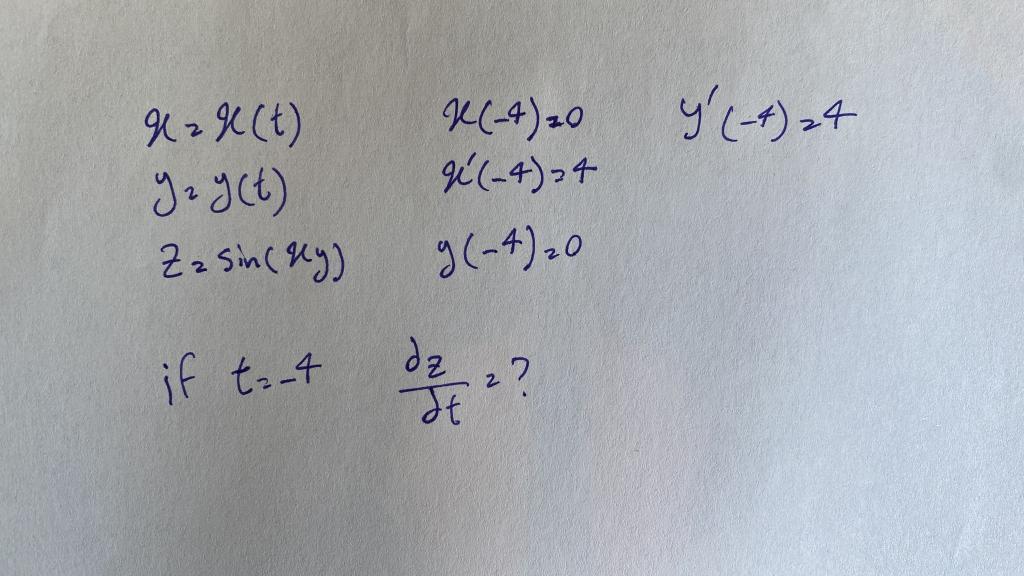 x = x(t) x(-4) = 0 y'(-4) = 4
y = y(t) x'(-4) = 4
z = sin(xy) y(-4) = 0
if t = -4 ∂z/∂t = ?